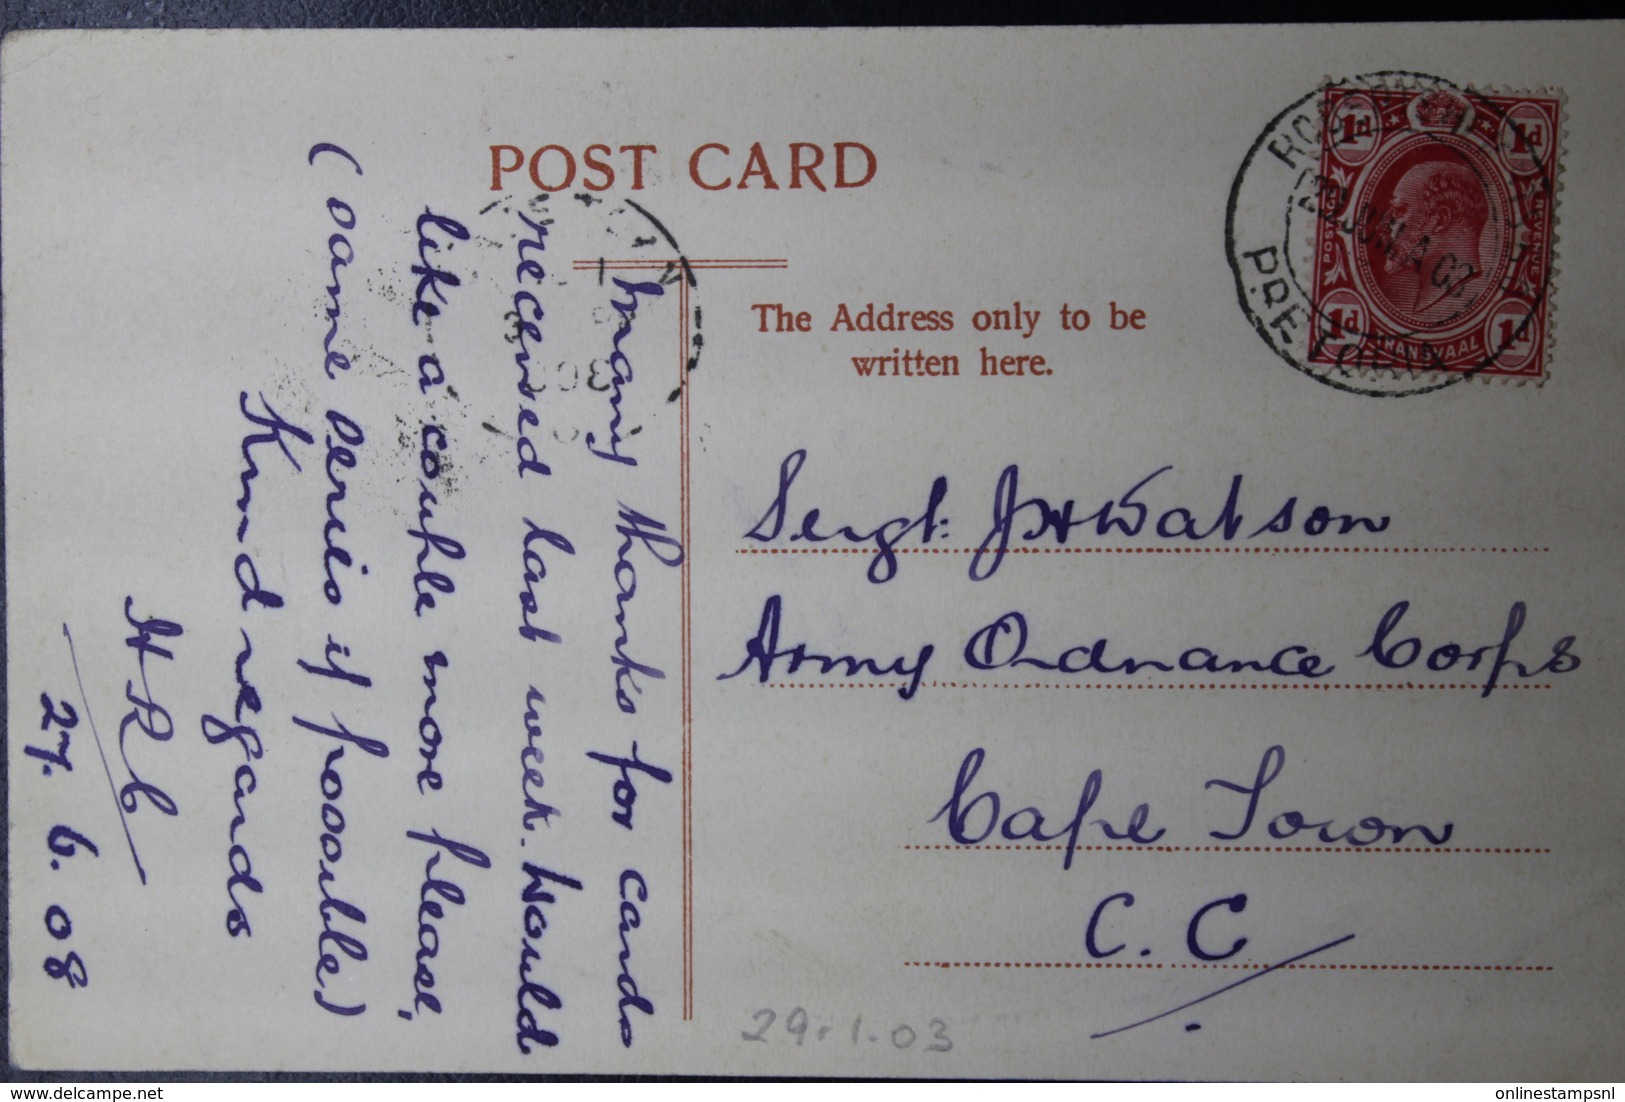 POST CARD
The Address only to be
written here.
many thanks for cards
received last week. Would
like a couple more please,
(same series if possible)
Kind regards
H R C
27. 6. 08
Sergt. J H Watson
Army Ordnance Corps
Cape Town
C. C.
29.1.03
ROBERTS HEIGHTS
PRETORIA
1d
1d
POSTAGE
REVENUE
1d
1d
TRANSVAAL
onlinestampsnl